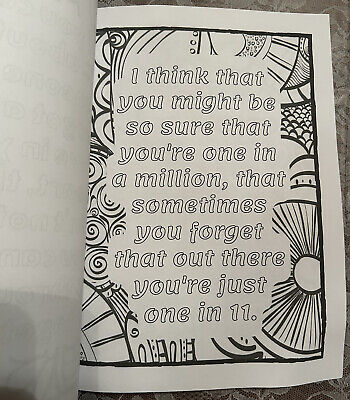 I think that
you might be
so sure that
you're one in
a million, that
sometimes
you forget
that out there
you're just
one in 11.